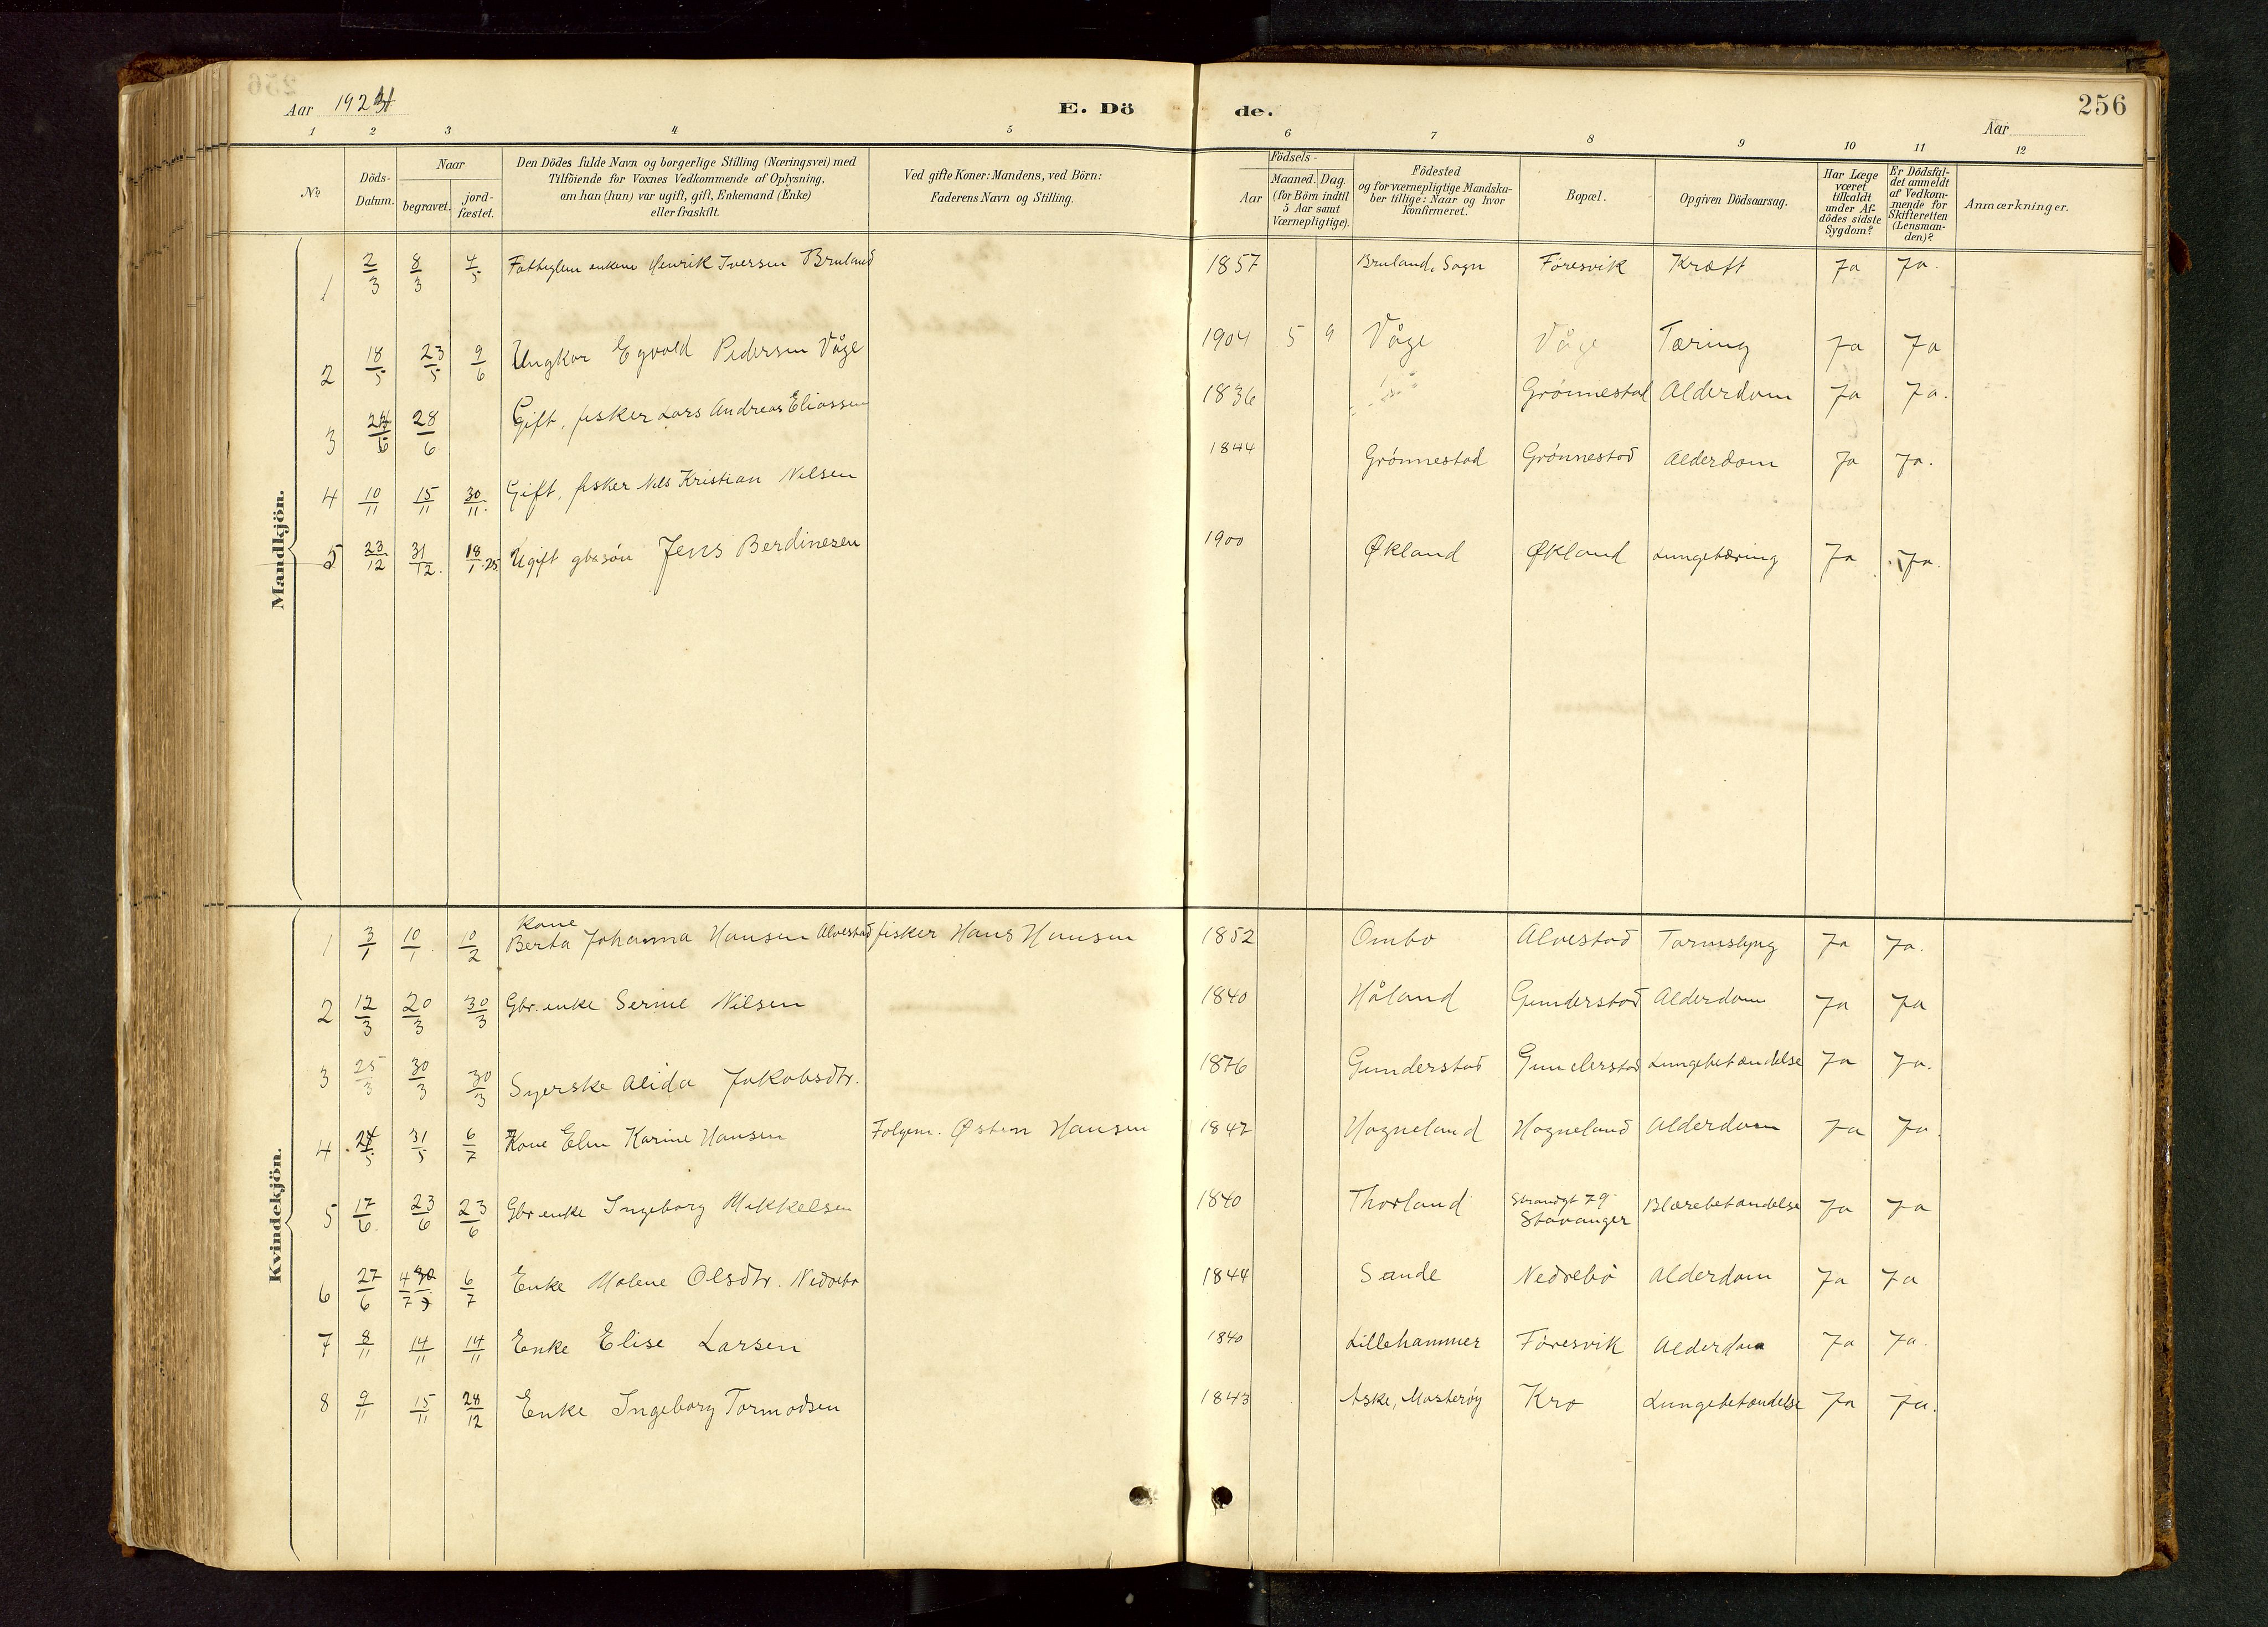 256
Aar 1924
E. Dö de.
Aar
1 2 3 4 5 6 7 8 9 10 11 12
No.
Döds-Datum.
Naar
begravet.
jord-fæstet.
Den Dödes fulde Navn og borgerlige Stilling (Næringsvei) med
Tilföiende for Voxnes Vedkommende af Oplysning,
om han (hun) var ugift, gift, Enkemand (Enke)
eller fraskilt.
Ved gifte Koner: Mandens, ved Börn:
Faderens Navn og Stilling.
Födsels-
Aar
Maaned. Dag.
(for Börn indtil
5 Aar samt
Værnepligtige).
Födested
og for værnepligtige Mandska-
ber tillige: Naar og hvor
konfirmeret.
Bopæl.
Opgiven Dödsaarsag.
Har Læge
været
tilkaldt
under Af-
dödes sidste
Sygdom?
Er Dödsfal-
det anmeldt
af Vedkom-
mende for
Skifteretten
(Lensman-
den)?
Anmærkninger.
Mandkjön.
1 2/3 8/3 4/5 Henrik Iversen Bruland 1857 Bruland, Sogn Föresvik Kræft Ja Ja.
2 18/5 23/5 9/6 Ungkar Egvald Pedersen Våge 1904 5 9 Våge Våge Tæring Ja Ja
3 24/6 28/6 Gift, fisker Lars Andreas Eliassen 1836 Grönnestad Alderdom Ja Ja.
4 10/11 15/11 30/11. Gift, fisker Nils Kristian Nilsen 1844 Grönnestad Grönnestad Alderdom Ja Ja.
5 23/12 31/12. 18/1.25 Ugift gbs sön Jens Berdinesen 1900 Økland Økland Lungetæring Ja Ja.
Kvindekjön.
1 3/1 10/1. 10/2 Kone Berta Johanna Hansen Alvestad fisker Hans Hansen 1852 Ombo Alvestad Tarmslyng Ja Ja.
2 12/3 20/3 30/3 Gbr. enke Serine Nilsen 1840 Håland Gunderstad Alderdom Ja Ja
3 25/3 30/3 30/3 Syerske Alida Jakobsdtr. 1876 Gunderstad Gunderstad Lungebetændelse Ja Ja.
4 24/5 31/5 6/7 Kone Elen Karine Hansen Folgem. Østen Hansen 1847 Hagneland Hagneland Alderdom Ja Ja.
5 17/6. 23/6 23/6 Gbr enke Ingeborg Mikkelsen 1840 Thorland Strandgt 79 Stavanger Blærebetændelse Ja Ja
6 27/6 4/7 6/7 Enke Malene Olsdtr. Nedrebö 1844 Sande Nedrebö Alderdom Ja Ja
7 8/11 14/11 14/11 Enke Elise Larsen 1840 Lillehammer Föresvik Alderdom Ja Ja.
8 9/11 15/11 28/12 Enke Ingeborg Tormodsen 1843 Aske, Mosteröy Kro Lungebetændelse Ja Ja.